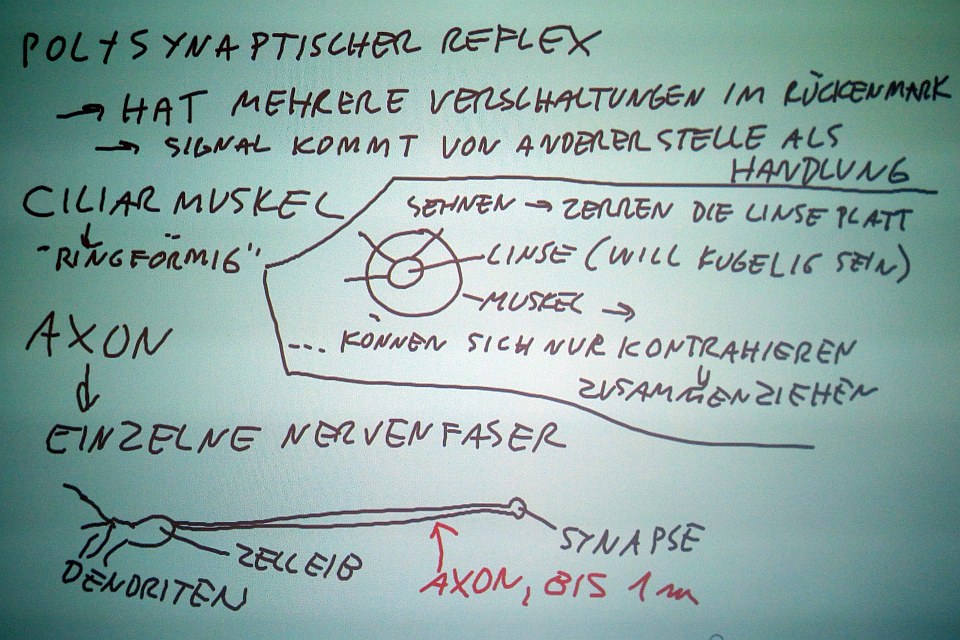 POLYSYNAPTISCHER REFLEX
→ HAT MEHRERE VERSCHALTUNGEN IM RÜCKENMARK
→ SIGNAL KOMMT VON ANDERER STELLE ALS
HANDLUNG
CILIARMUSKEL
"RINGFÖRMIG"
SEHNEN → ZERREN DIE LINSE PLATT
LINSE (WILL KUGELIG SEIN)
MUSKEL →
... KÖNNEN SICH NUR KONTRAHIEREN
ZUSAMMENZIEHEN
AXON
EINZELNE NERVENFASER
DENDRITEN
ZELLEIB
SYNAPSE
AXON, BIS 1 m